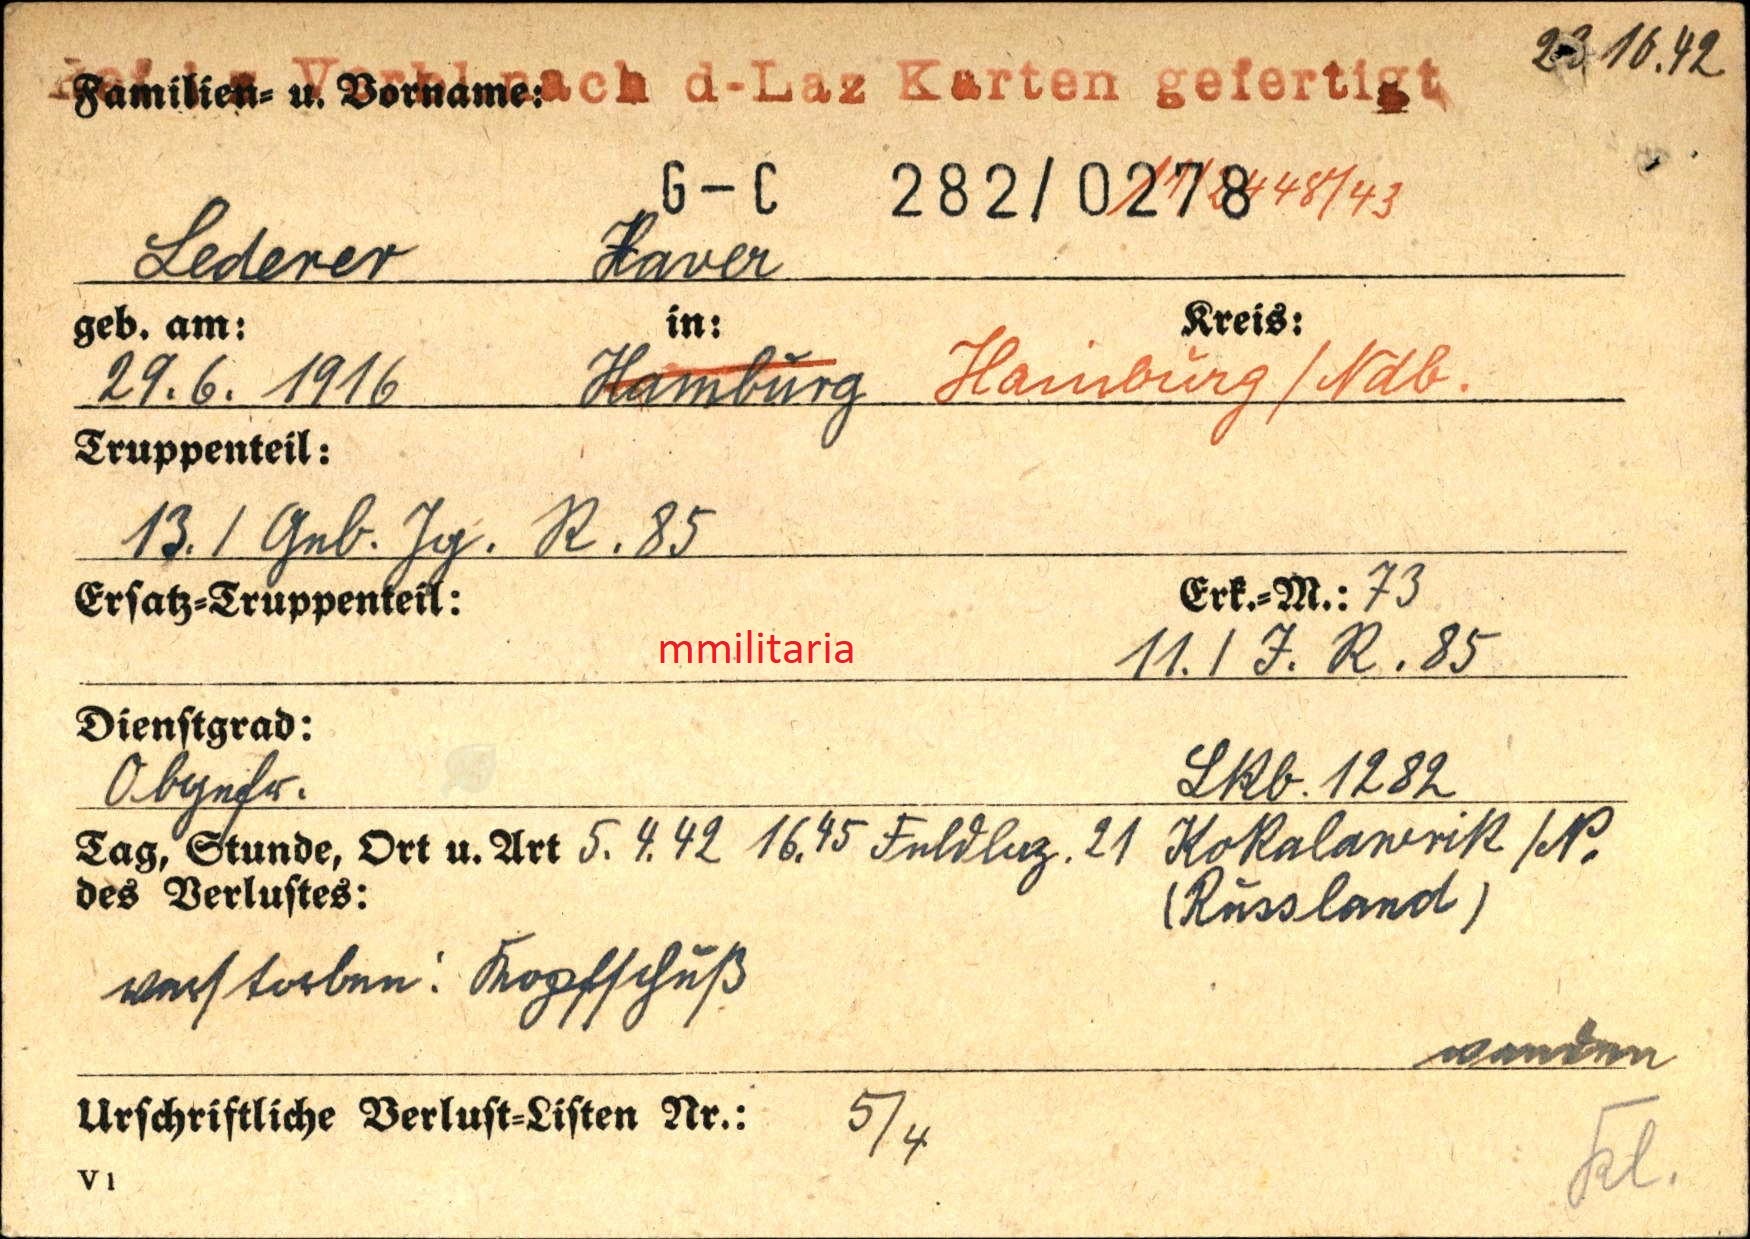 23 10.42
nach d-Laz Karten gefertigt
Familien- u. Vorname:
G-C 282/0278 448/43
Lederer Xaver
geb. am: in: Kreis:
29.6. 1916 Hamburg Hainburg / Ndb.
Truppenteil:
13. / Geb. Jg. R. 85
Ersatz-Truppenteil: Erk.-M.: 73
mmilitaria 11. / J. R. 85
Dienstgrad:
Obgefr. Lkb. 1282
Tag, Stunde, Ort u. Art 5. 4. 42 16.45 Feldlaz. 21 Kokalawrik /N.
des Verlustes: (Russland)
verstorben: Kopfschuß
Urschriftliche Verlust-Listen Nr.: 5/4
V 1